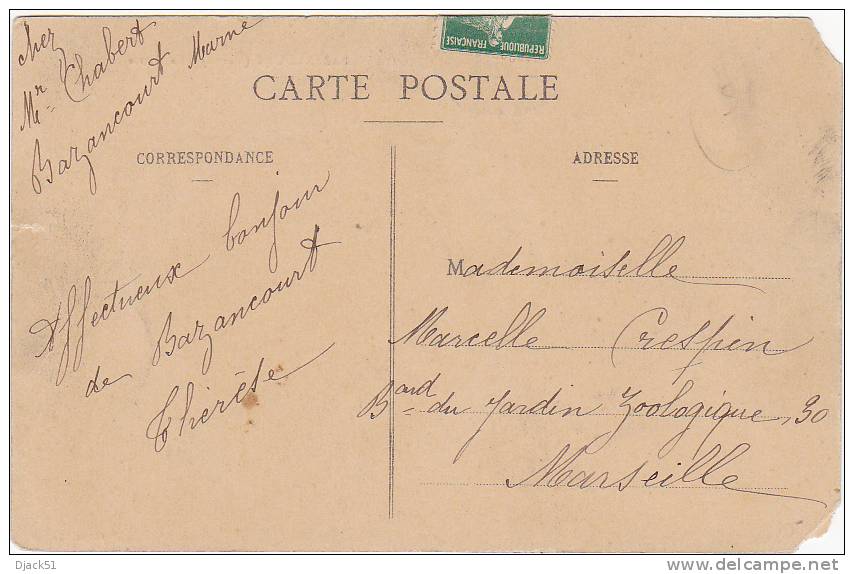 chez
Mr Chabert
Bazancourt Marne
REPUBLIQUE
FRANÇAISE
CARTE POSTALE
CORRESPONDANCE
ADRESSE
Affectueux bonjour
de Bazancourt
Thérèse
Mademoiselle
Marcelle Crespin
Bard du Jardin Zoologique, 30
Marseille
Djack51
www.delcampe.net